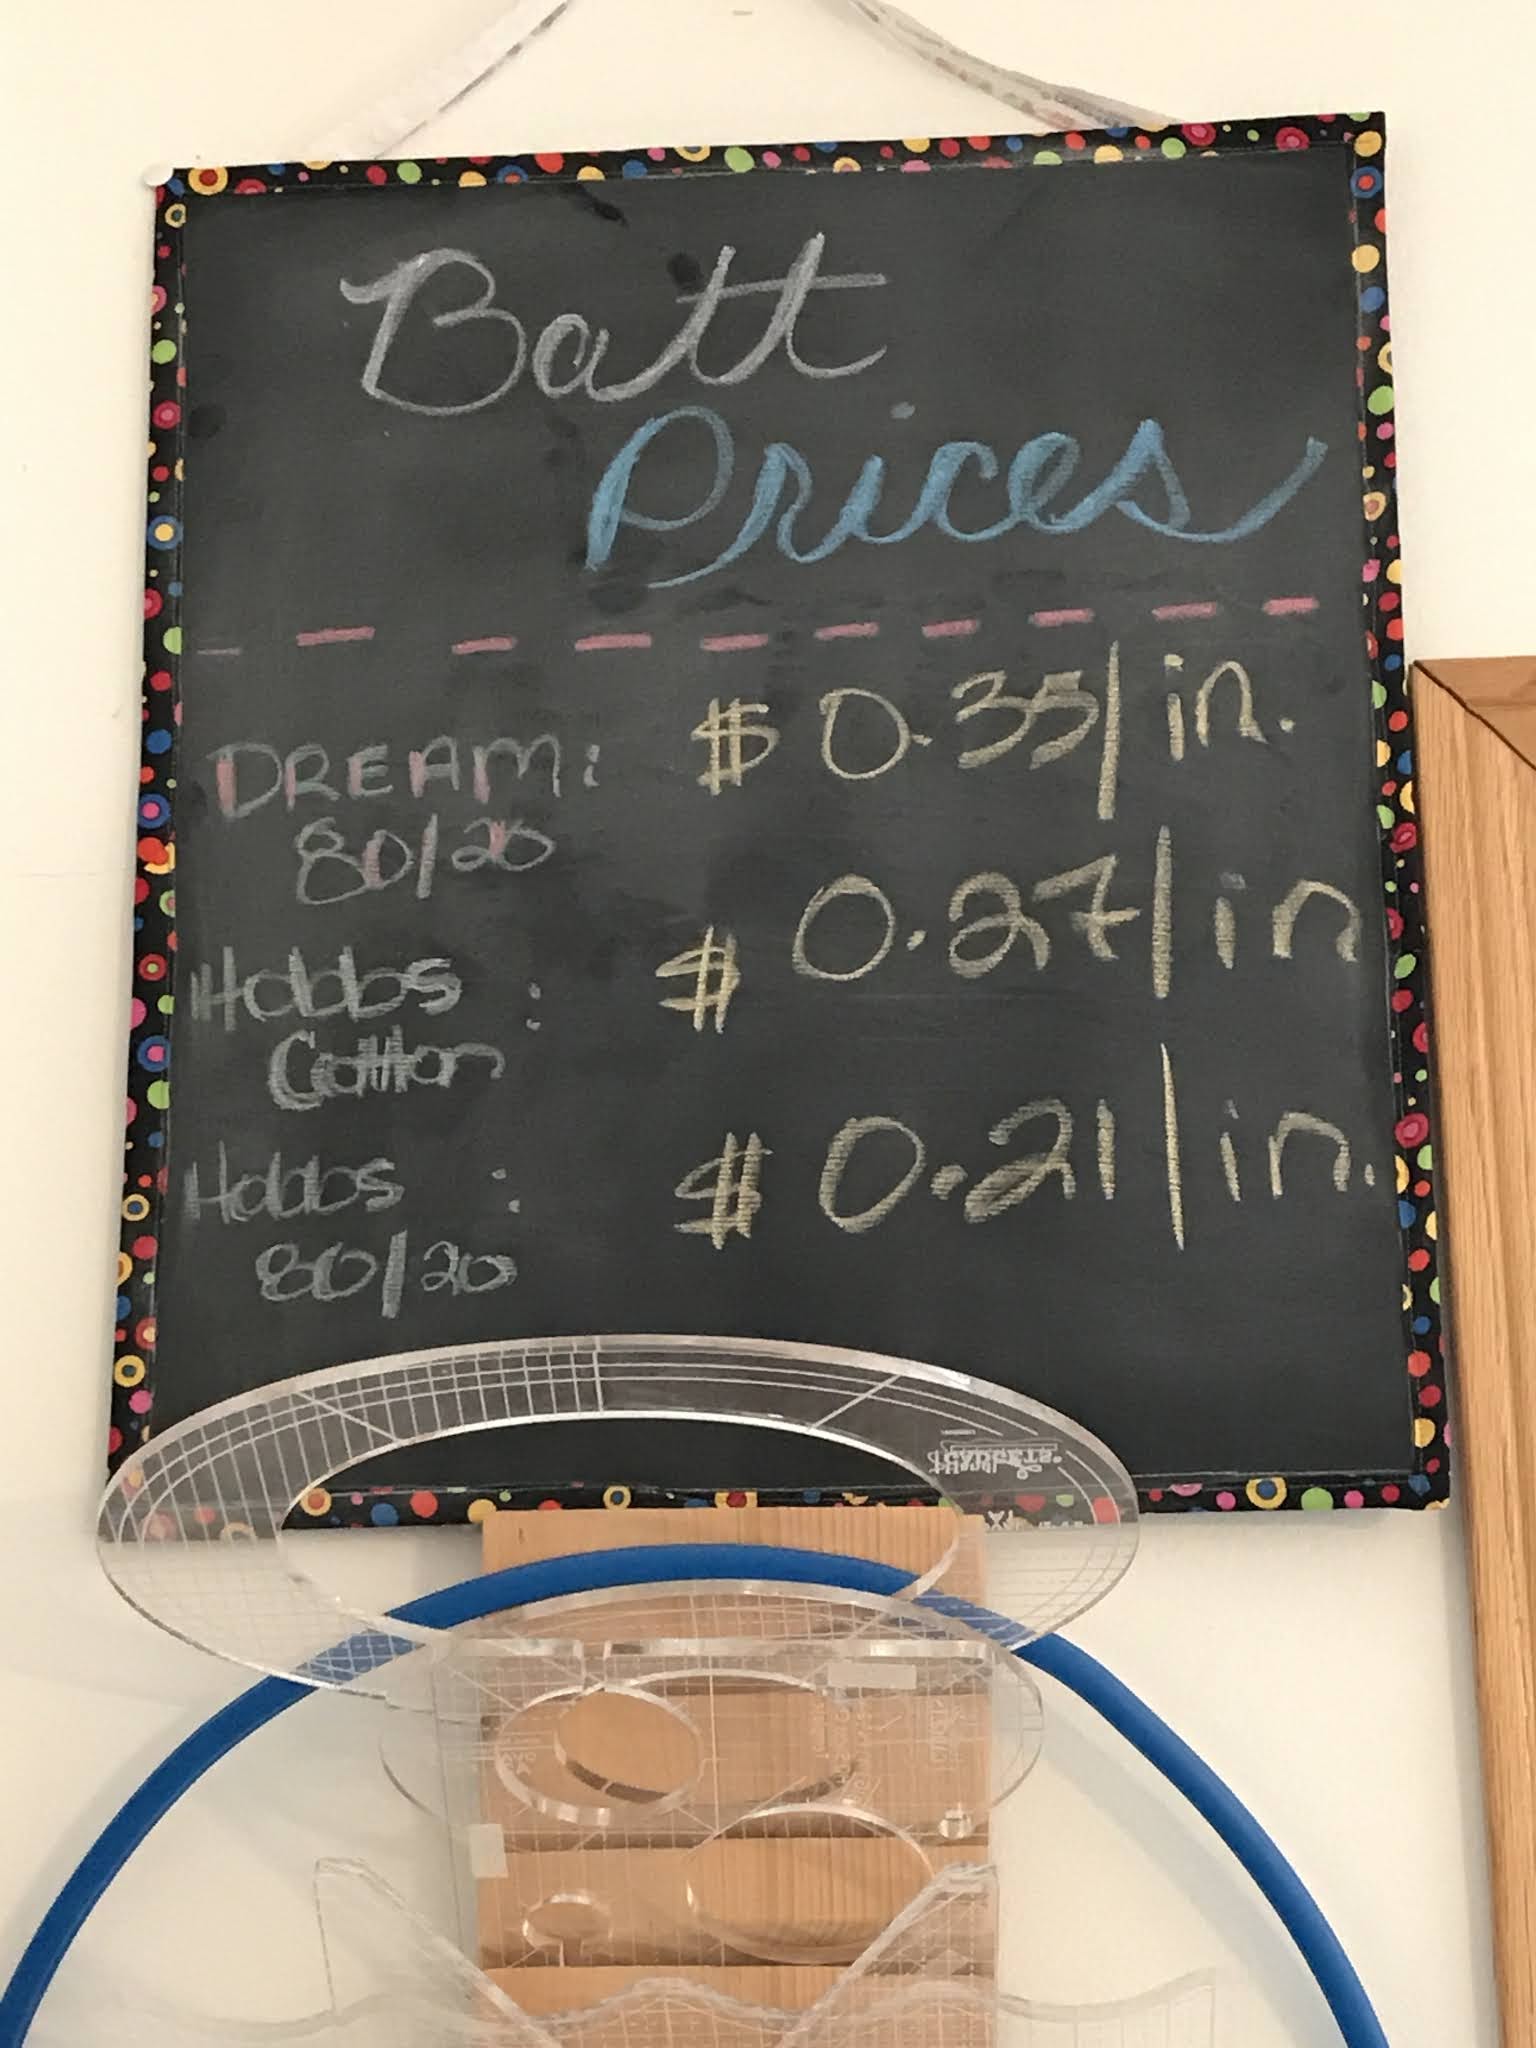 Batt
Prices
DREAM: $ 0.35/in.
80/20
Hobbs : $ 0.27/in
Cotton
Hobbs : $ 0.21/in.
80/20